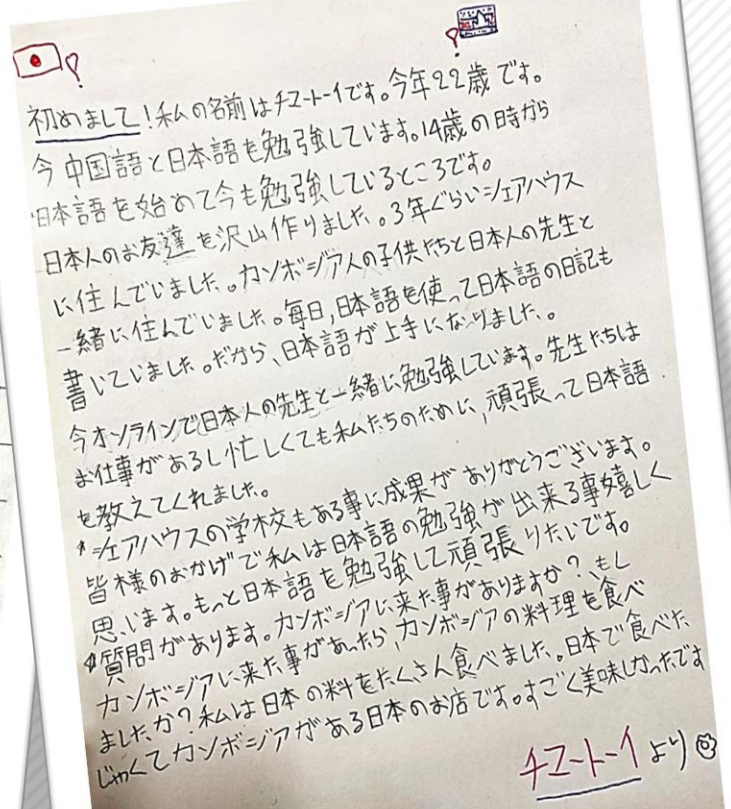 初めまして！私の名前はチエートーイです。今年22歳です。
今中国語と日本語を勉強しています。14歳の時から
日本語を始めて今も勉強しているところです。
日本人のお友達を沢山作りました。3年ぐらいシェアハウス
に住んでいました。カンボジア人の子供たちと日本人の先生と
一緒に住んでいました。毎日,日本語を使って日本語の日記も
書いていました。だから、日本語が上手になりました。
今オンラインで日本人の先生と一緒に勉強しています。先生たちは
お仕事があるし忙しくても私たちのために,頑張って日本語
を教えてくれました。
シェアハウスの学校もある事に成果がありがとうございます。
皆様のおかげで私は日本語の勉強が出来る事嬉しく
思います。もっと日本語を勉強して頑張りたいです。
質問があります。カンボジアに来た事がありますか？もし
カンボジアに来た事があったら,カンボジアの料理を食べ
ましたか？私は日本の料をたくさん食べました。日本で食べた
じゃくてカンボジアがある日本のお店です。すごく美味しかったです
チエートーイより